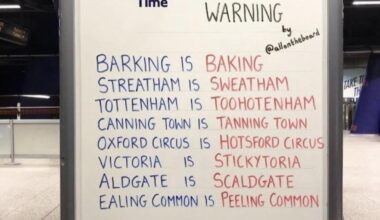 Time
WARNING
by
@allontheboard
BARKING IS BAKING
STREATHAM IS SWEATHAM
TOTTENHAM IS TOOHOTENHAM
CANNING TOWN IS TANNING TOWN
OXFORD CIRCUS IS HOTSFORD CIRCUS
VICTORIA IS STICKYTORIA
ALDGATE IS SCALDGATE
EALING COMMON IS PEELING COMMON